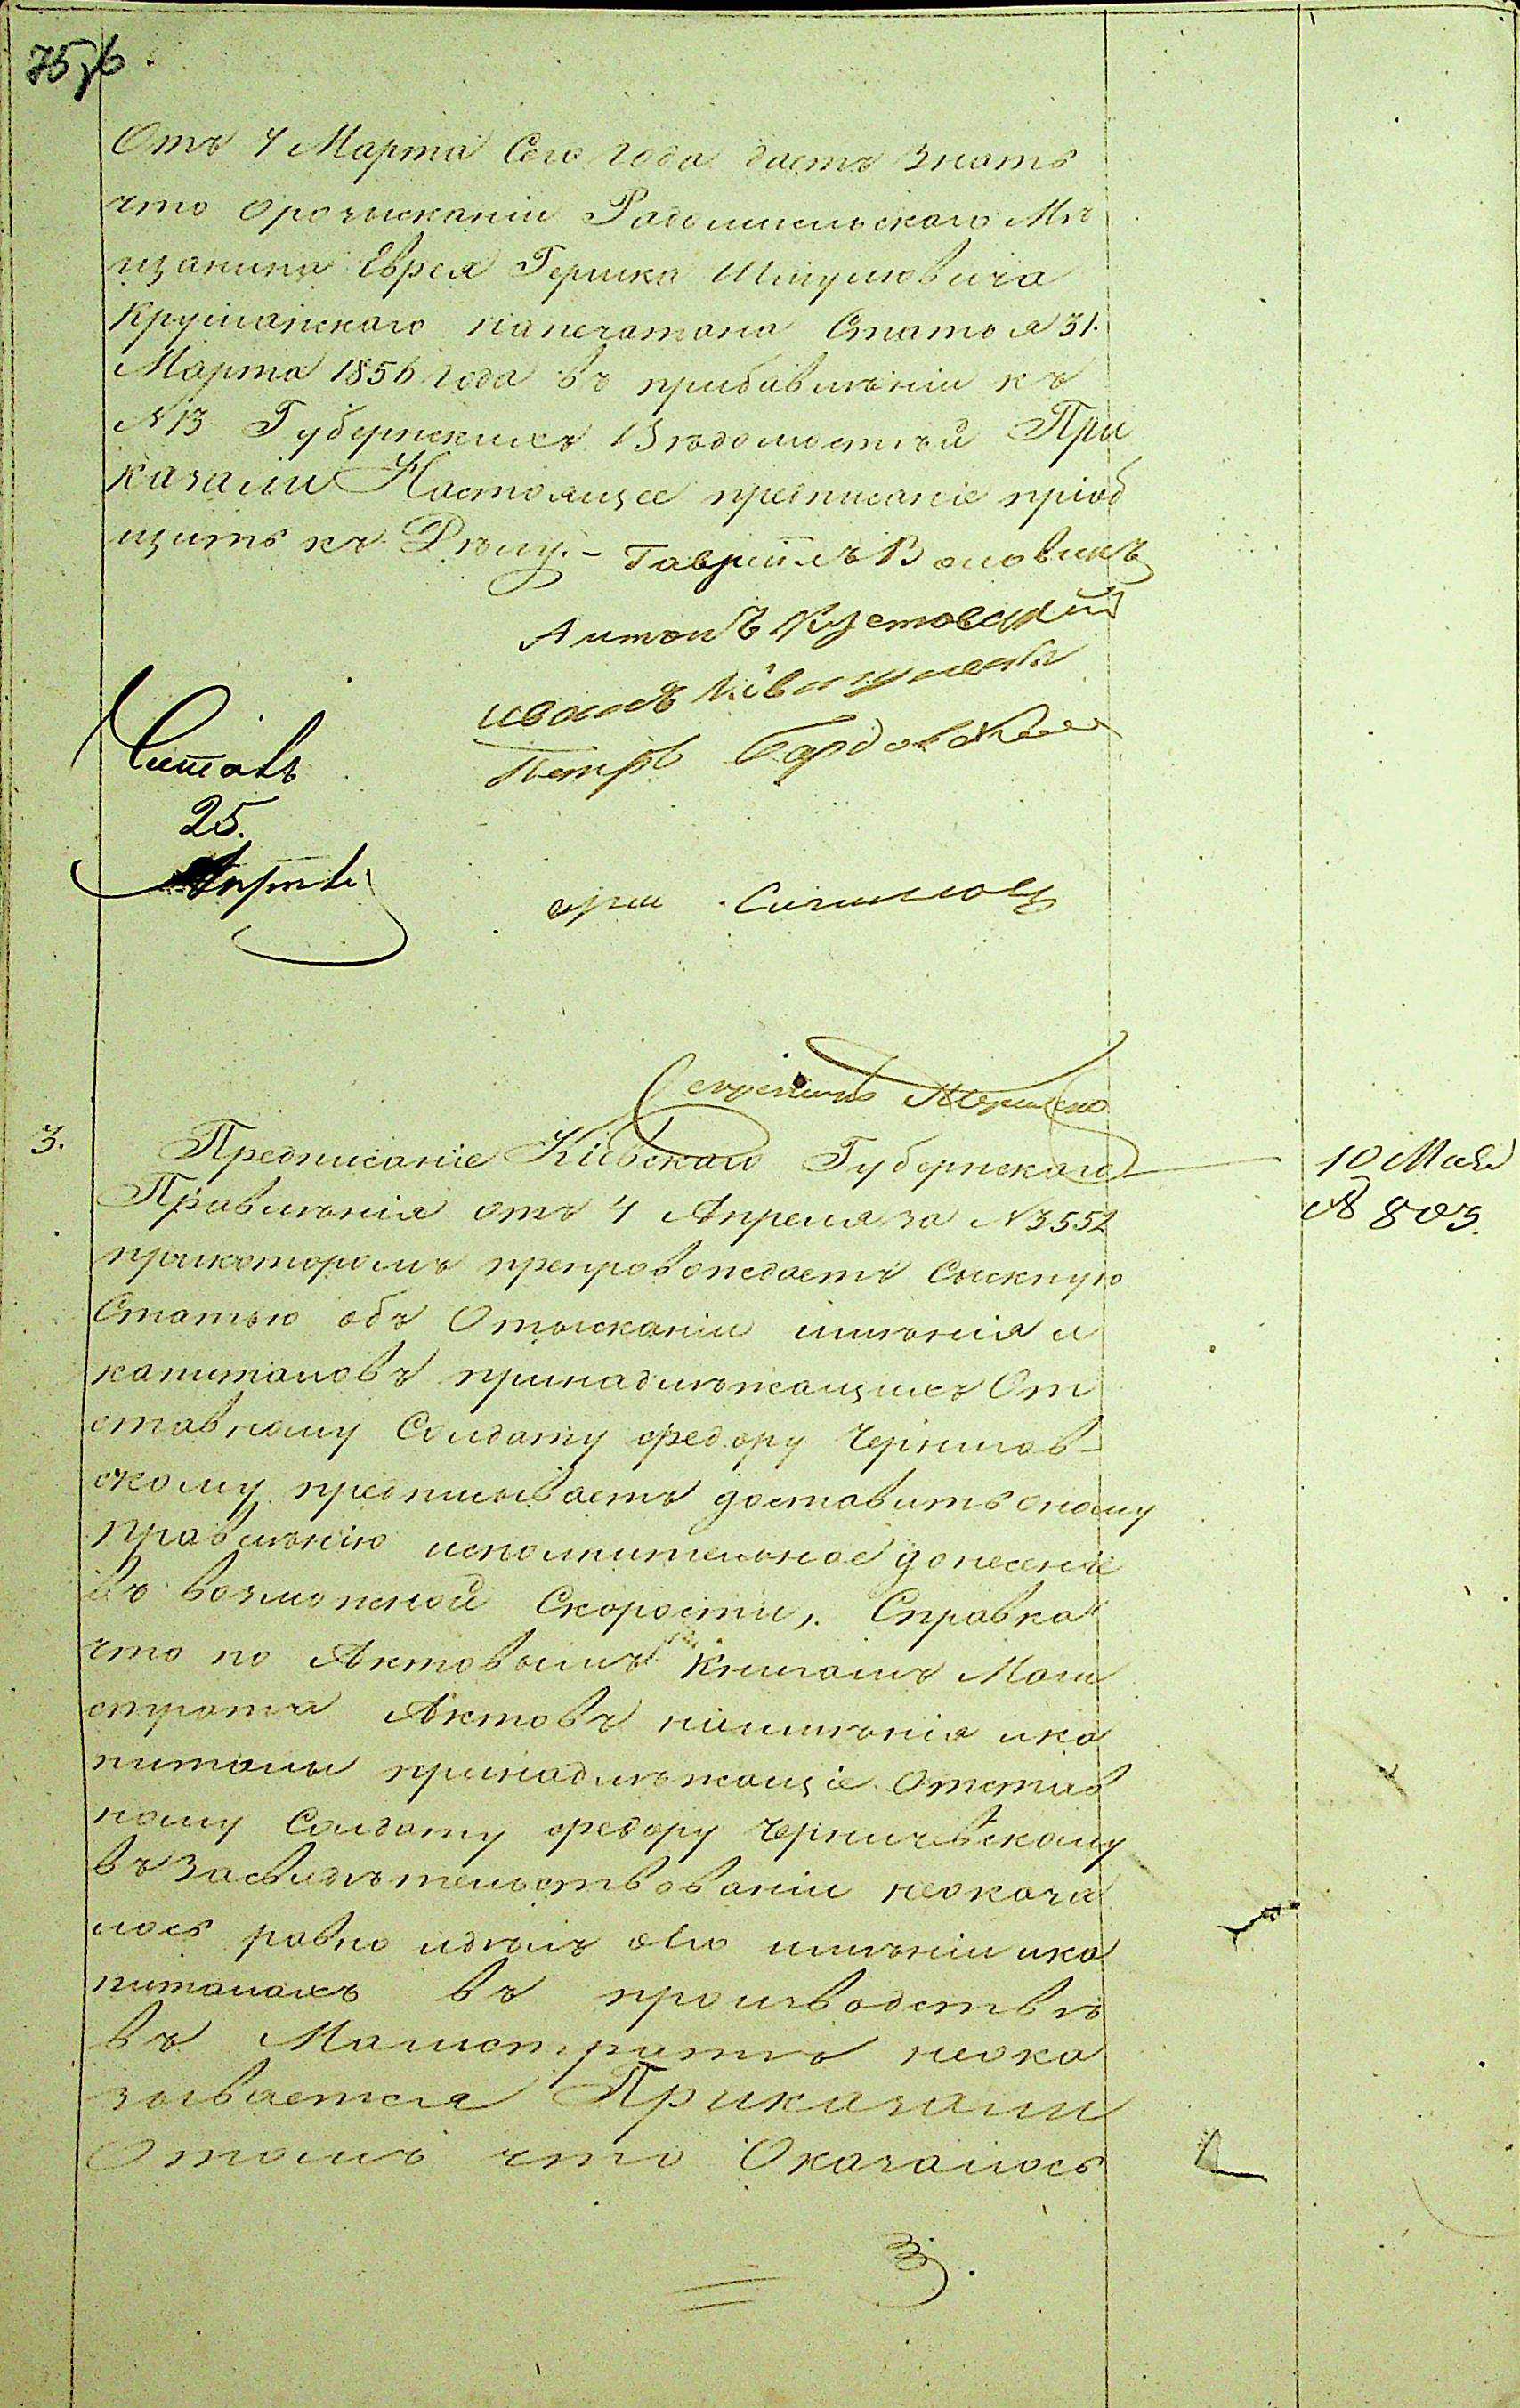 Отъ 4 Марта Сего года даетъ знать
что орозысканіи Радомисльскаго Мѣ
щанина Еврея Гершка Шмулювича
напечатана Статья 31.
Марта 1856 года въ прибавлѣніи къ
N 13 Губернскихъ Вѣдомостѣй При
казали Настоящее предписаніе пріоб
щить къ Дѣлу. – Гавріилъ Воловикъ
Антонъ
иванъ
Петръ
Читалъ
25.
Секретарь
3.
Предписаніе Кіевскаго Губернскаго
Правлѣнія отъ 4 Апреля за N 3552
прикоторомъ препровождаетъ Сыскную
Статью объ Отысканіи имѣнія и
капиталовъ принадлѣжащихъ От
ставному Солдату Федору
скому предписываетъ доставить оному
правлѣнію исполнительное донесеніе
въ возможной Скорости, Справка
что по Актовымъ Книгамъ Маги
строта Актовъ наимѣнія ика
питалы принадлѣжащіе Отстав
ному Солдату Федору
въ засвидѣтельствованіи неокоза
лось равно идѣлъ имѣніи ика
питалахъ въ производствѣ
въ Магистратѣ неока
зывается Приказали
Отомъ что Оказалось
10 Мая
N 803.